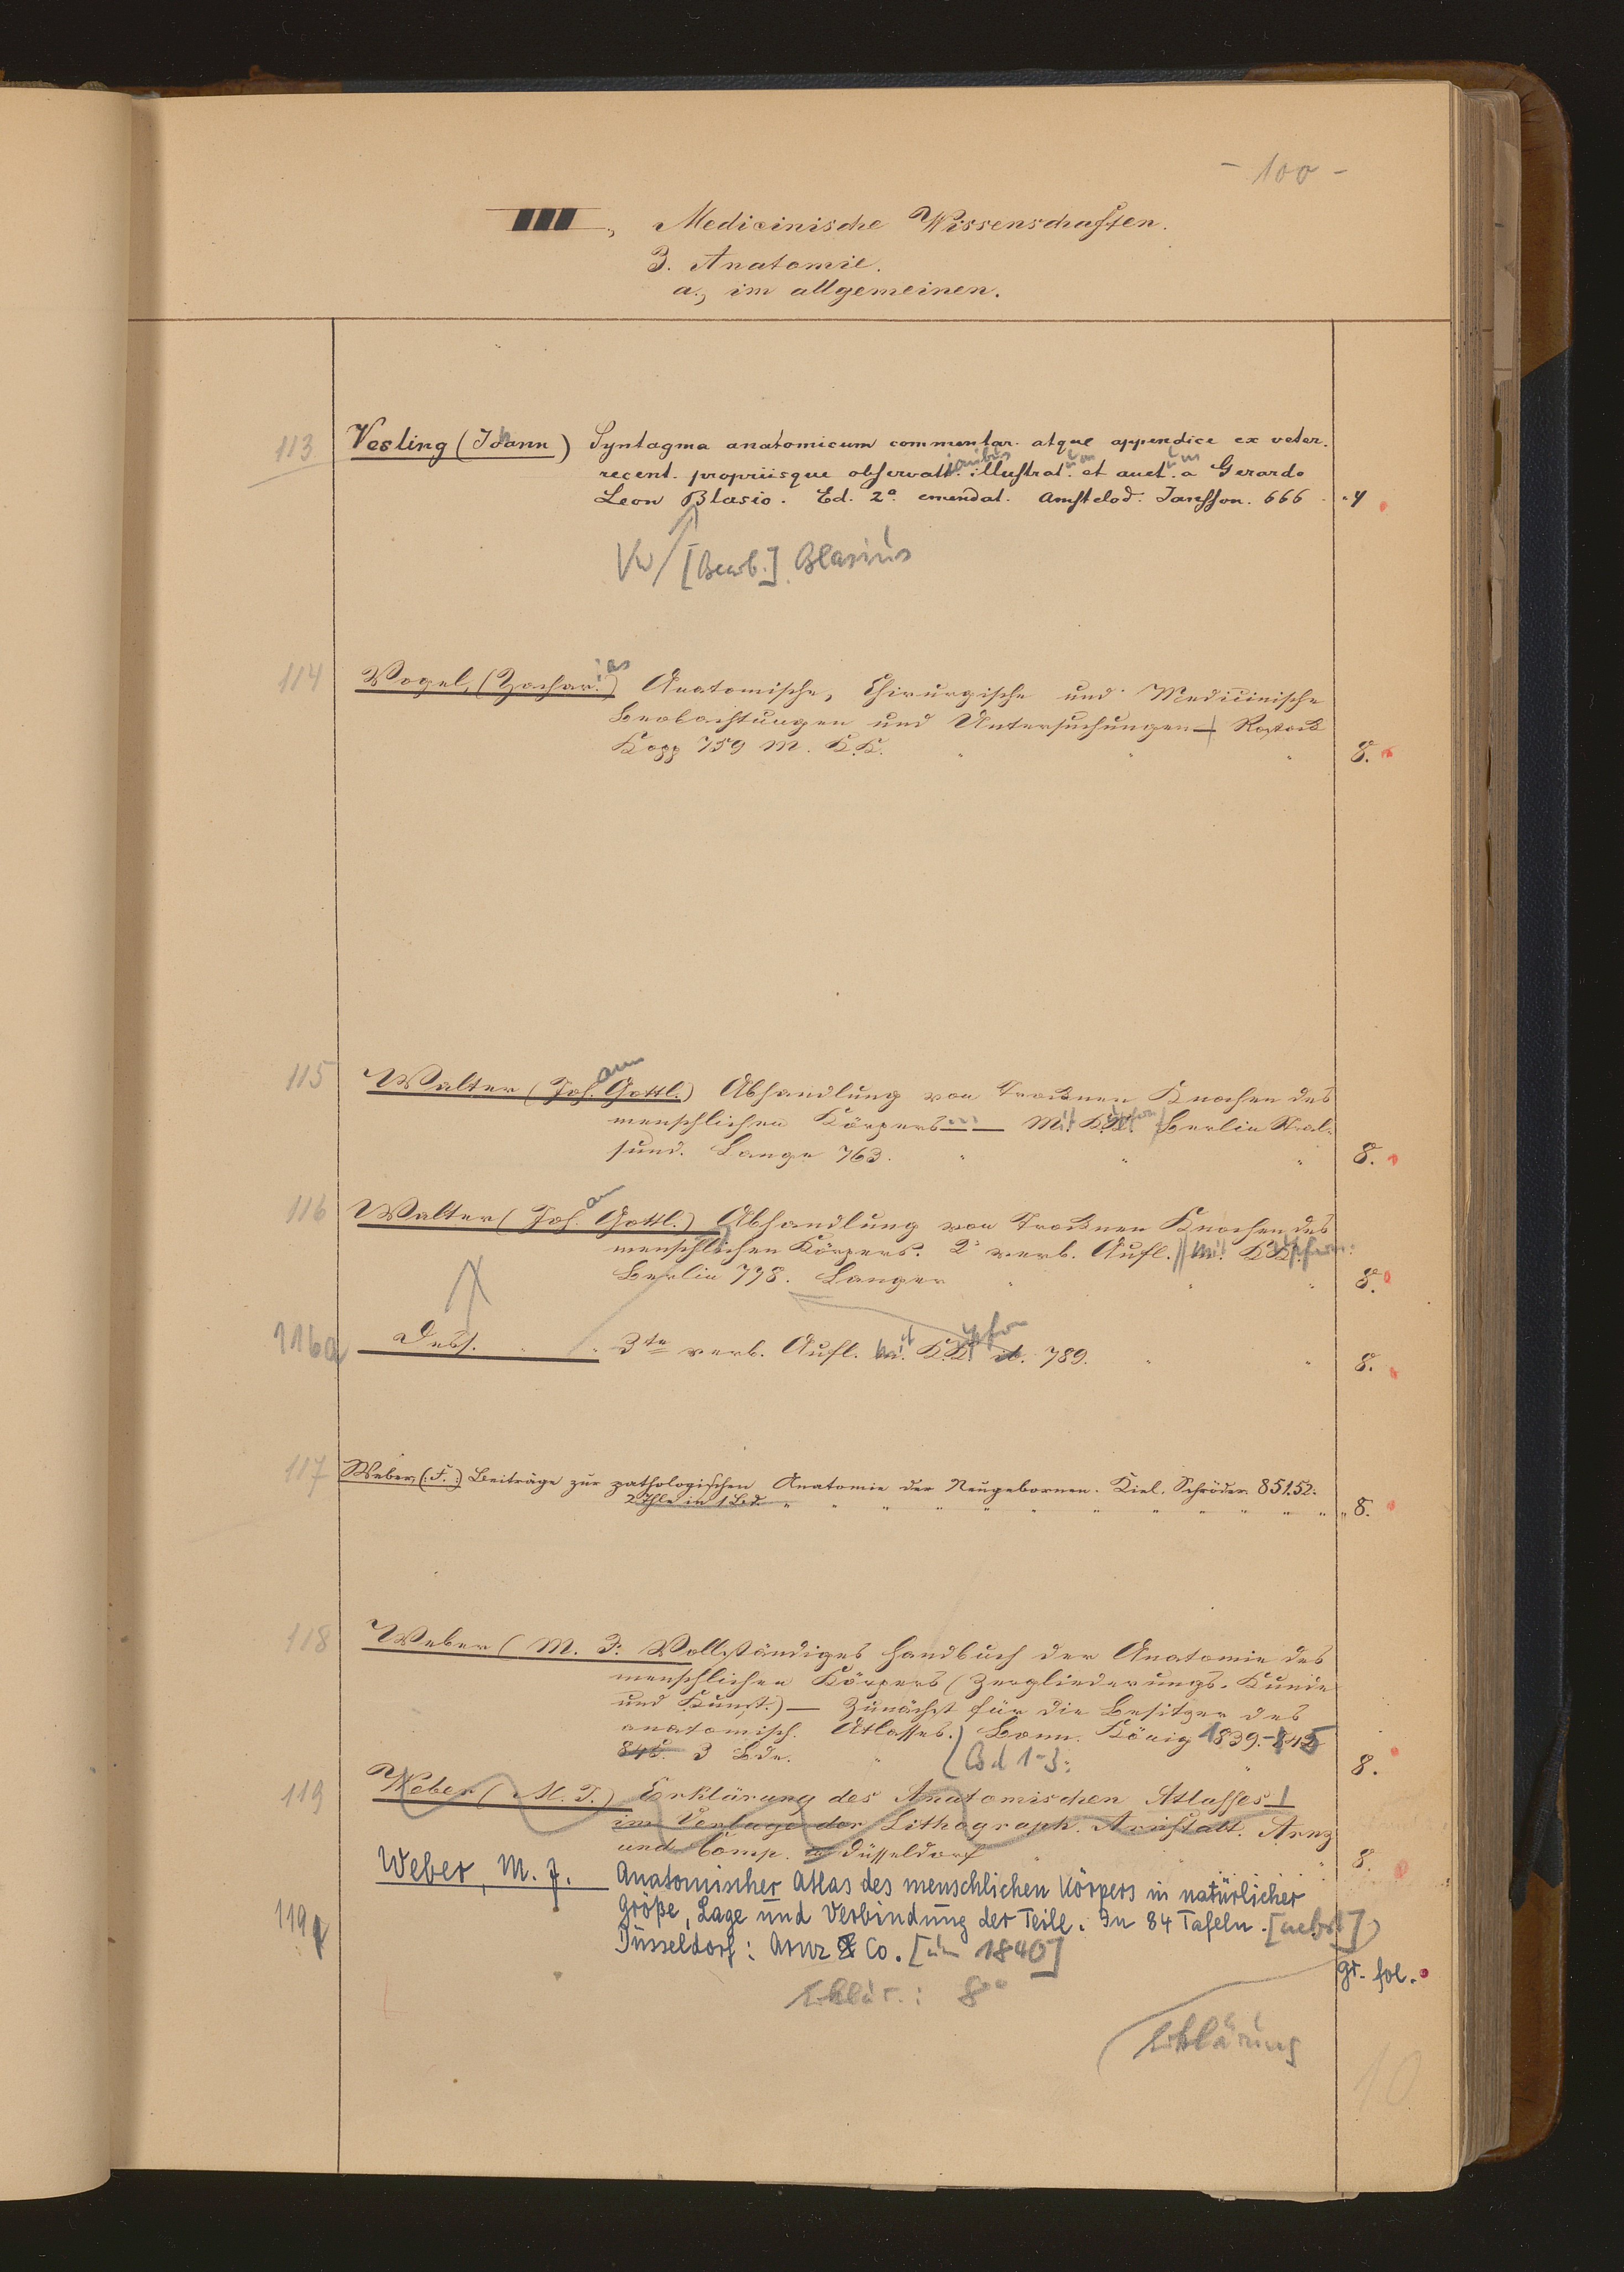 - 100 -
III, Medicinische Wissenschaften.
3. Anatomie.
a., im allgemeinen.
113 Vesling (Johann) Syntagma anatomicum commentar. atque appendice ex veter.
recent. propriisque observatt.ionibus illustrat.um et auct.um a Gerardo
Leon Blasio. Ed. 2a. emendat. Amstelod. Jansson. 666 4
Vw [Bearb.] Blasius
114 Vogel, (Zachar.ias) Anatomische, Chirurgische und Medicinische
Beobachtungen und Untersuchungen Rostock
Kopp 759 M. K.K. 8.
115 Walter (Joh.ann Gottl.) Abhandlung von trocknen Knochen des
menschlichen Körpers — Mit Kupfern Berlin Stral-
sund. Lange 763. 8.
116 Walter (Joh.ann Gottl.) Abhandlung von trocknen Knochen des
menschlichen Körpers. 2. verb. Aufl. mit Kupfern.
Berlin 778. Langer 8.
116a Dess. " 3te verb. Aufl. mit Kupfern ib. 789. 8.
117 Weber, (:F.:) Beiträge zur pathologischen Anatomie der Neugebornen. Kiel. Schröder. 851.52.
2 Thle in 1 Bd. 8.
118 Weber (M. J. Vollständiges Handbuch der Anatomie des
menschlichen Körpers (Zergliederungs-Kunde
und Kunst.) — Zunächst für die Besitzer des
anatomisch. Atlasses.) Bonn. König 1839.-1845
845. 3 Bde. (Bd 1-3: 8.
119 Weber (M. J.) Erklärung des Anatomischen Atlasses
im Verlage der Lithograph. Anstalt. Arnz
und Comp. in Düsseldorf 8.
Weber, M. J. Anatomischer Atlas des menschlichen Körpers in natürlicher
119a Größe, Lage und Verbindung der Teile. In 84 Tafeln. [nebst]
Düsseldorf: Arnz & Co. [um 1840]
gr. fol.
Erklär.: 8°
Erklärung
10